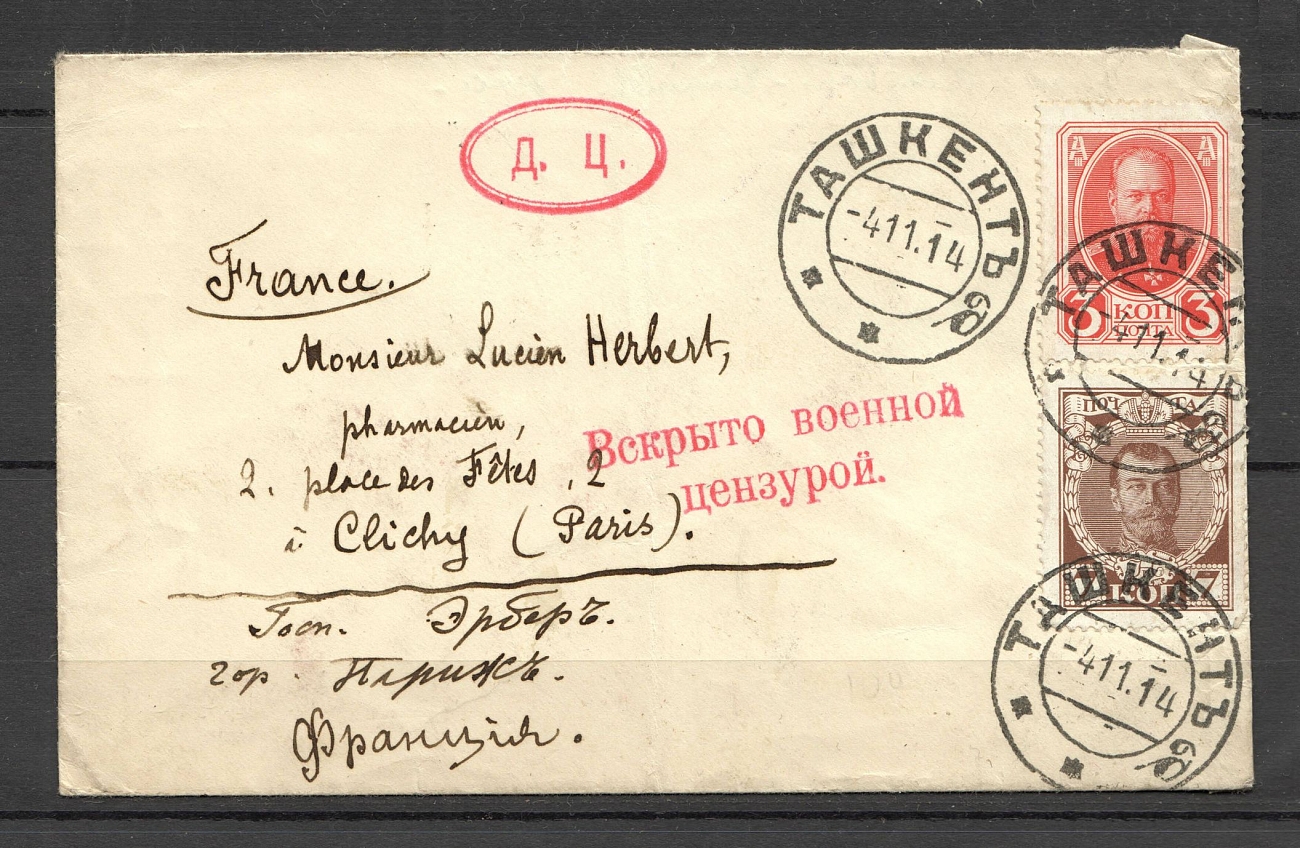 Д. Ц.
ТАШКЕНТЪ
-4 11.14
France.
Monsieur Lucien Herbert,
pharmacien,
2. place des Fêtes, 2
à Clichy (Paris).
Вскрыто военной
цензурой.
Госп. Эрберъ.
гор. Парижъ.
Франція.
3 КОП 3
ПОЧТА
ТАШКЕНТЪ
-4 11.14
ПОЧТА
7 КОП 7
ТАШКЕНТЪ
-4 11.14